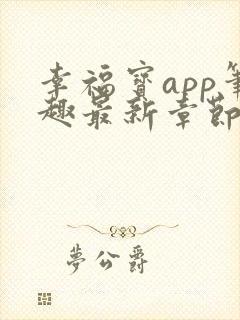 幸福宝app笔
趣最新章节
梦公爵